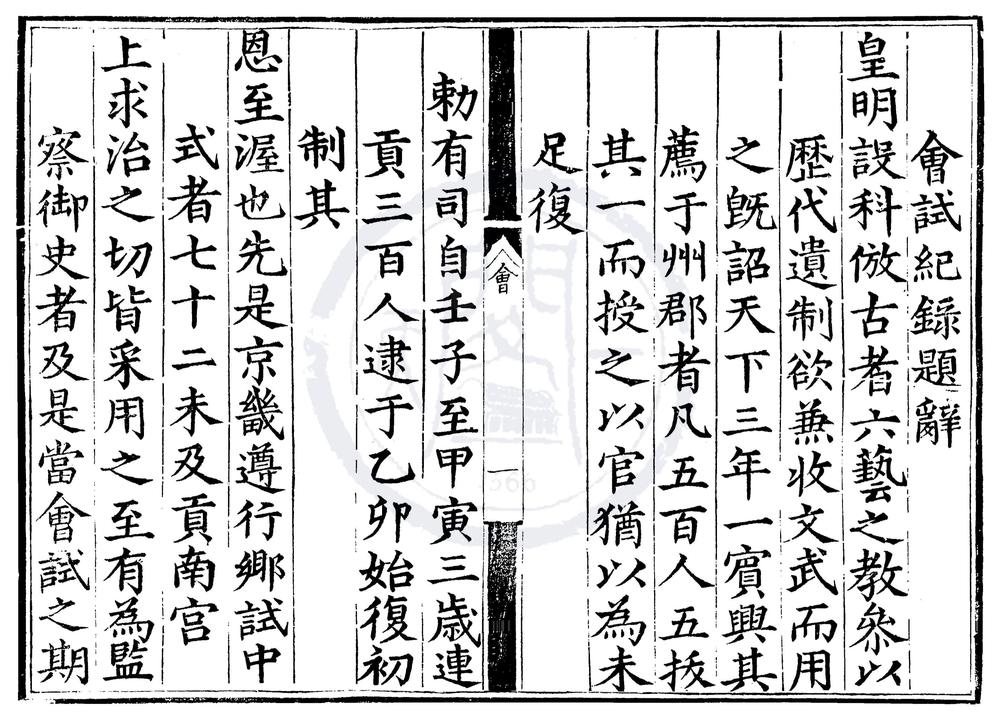 會試紀錄題辭
皇明設科倣古者六藝之教叅以
歷代遺制欲兼收文武而用
之旣詔天下三年一賔興其
薦于州郡者凡五百人五拔
其一而授之以官猶以為未
足復
會
一
勑有司自壬子至甲寅三歲連
貢三百人逮于乙卯始復初
制其
恩至渥也先是京畿遵行鄉試中
式者七十二未及貢南宫
上求治之切皆采用之至有為監
察御史者及是當會試之期